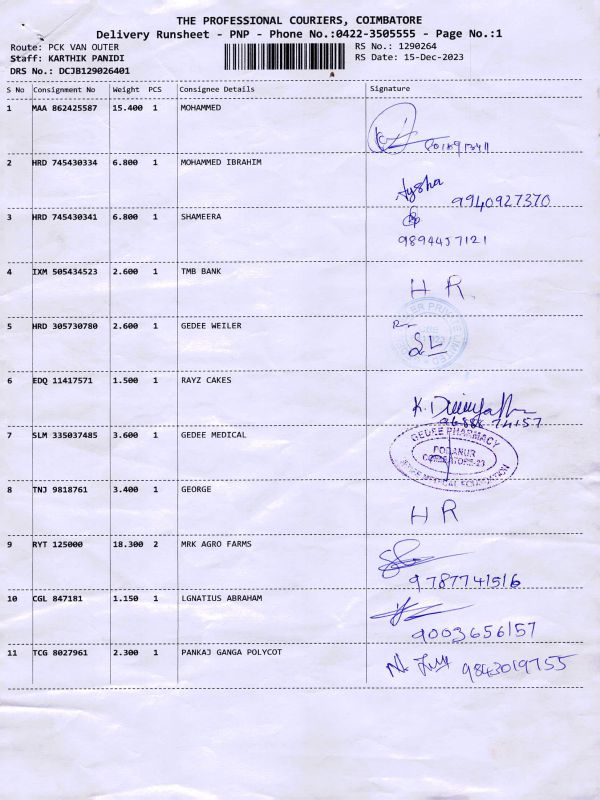 THE PROFESSIONAL COURIERS, COIMBATORE
Delivery Runsheet - PNP - Phone No.:0422-3505555 - Page No.:1
Route: PCK VAN OUTER RS No.: 1290264
Staff: KARTHIK PANIDI RS Date: 15-Dec-2023
DRS No.: DCJB129026401
S No Consignment No Weight PCS Consignee Details Signature
1 MAA 862425587 15.400 1 MOHAMMED
2 HRD 745430334 6.800 1 MOHAMMED IBRAHIM
Aysha 9940927370
3 HRD 745430341 6.800 1 SHAMEERA
9894457121
4 IXM 505434523 2.600 1 TMB BANK
H R
5 HRD 305730780 2.600 1 GEDEE WEILER
6 EDQ 11417571 1.500 1 RAYZ CAKES
7 SLM 335037485 3.600 1 GEDEE MEDICAL
GEDEE PHARMACY
PODANUR
COIMBATORE-23
8 TNJ 9818761 3.400 1 GEORGE
H R
9 RYT 125000 18.300 2 MRK AGRO FARMS
9787741516
10 CGL 847181 1.150 1 LGNATIUS ABRAHAM
9003656157
11 TCG 8027961 2.300 1 PANKAJ GANGA POLYCOT
9843019755